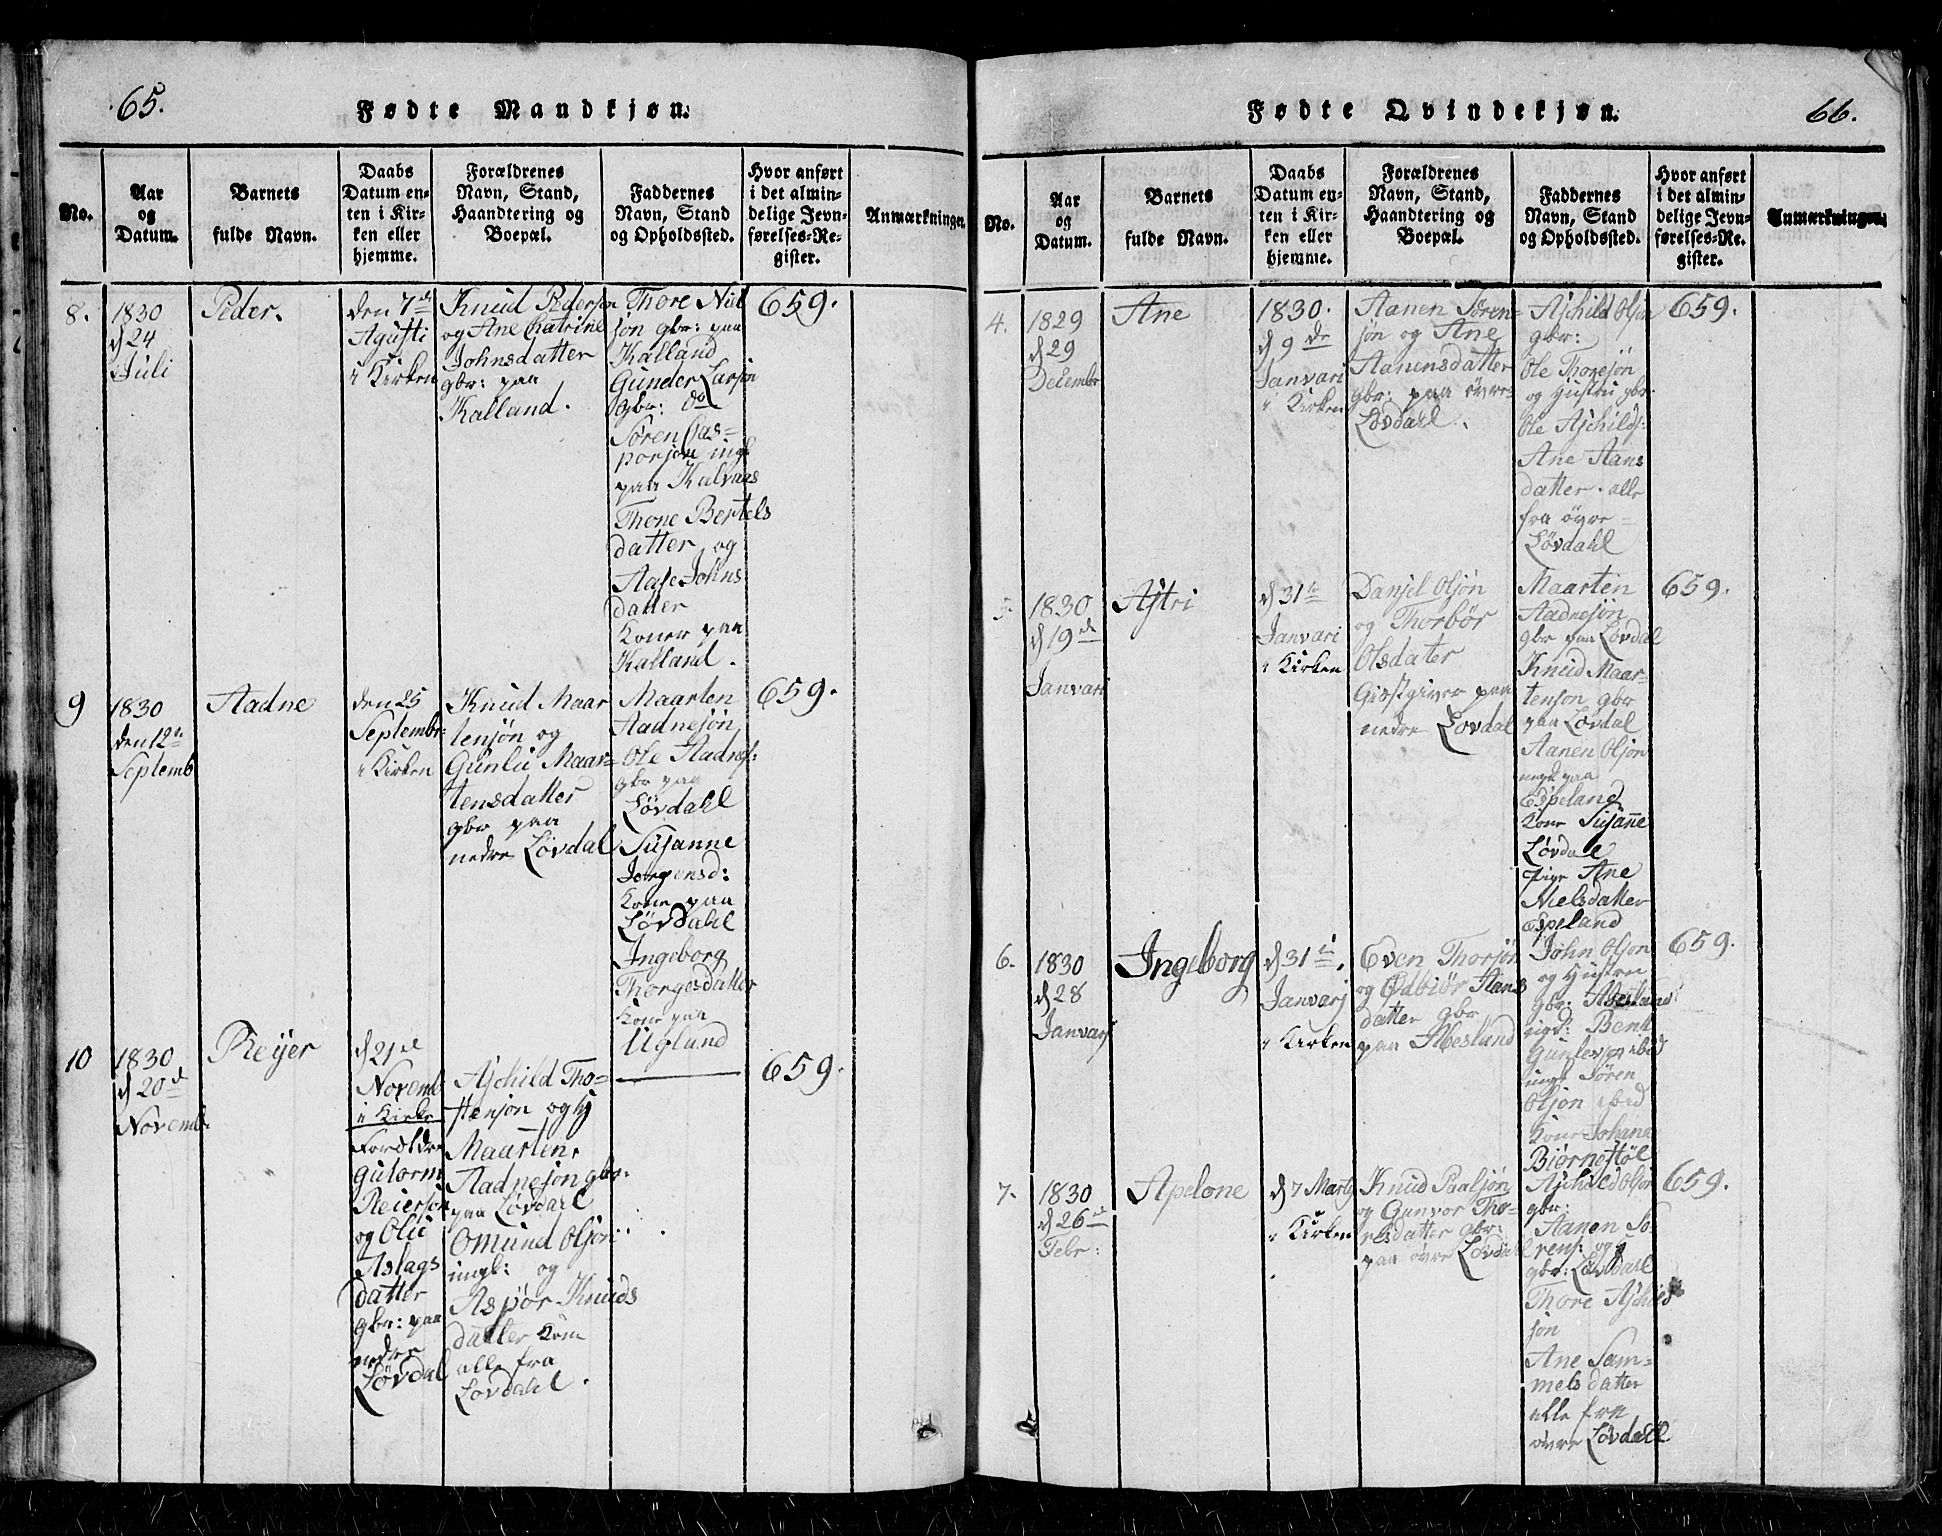 65.
Fødte Mandkjøn.
No.
Aar
og
Datum.
Barnets
fulde Navn.
Daabs
Datum en-
ten i Kir-
ken eller
hjemme.
Forældrenes
Navn, Stand,
Haandtering og
Boepæl.
Faddernes
Navn, Stand
og Opholdssted.
Hvor anført
i det almin-
delige Jevn-
førelses-Re-
gister.
Anmærkninger.
8.
1830
d 24
Juli
Peder.
den 7de
Agusti
i Kirken
Knud Pedersøn
og Ane Catrine
Johnsdatter
gbr: paa
Kalland.
Thore Niel
søn gbr: paa
Kalland
Gunder Larsøn
gbr: do
Søren Cas-
porsøn ingk
paa Kalvaas
Thone Bertels
datter og
Aase Johns
datter
Koner paa
Kalland.
659.
9
1830
den 12te
Septemb
Aadne
den 25
Septembr:
i Kirken
Knud Maar
tensøn og
Gunlu Maar-
tensdatter
gbr paa
nedre Løvdal
Maarten
Aadnesøn
Ole Aadnes:
gbr paa
Løvdahl
Susanne
Jorgensd:
Kone paa
Løvdahl
Ingeborg
Thorgesdatter
Kone paa
Ugland
659.
10
1830
d 20de
Novemb.
Reijer
d 21de
Novemb
i Kirke
Forældre
Gutorm
Reiersøn
og Olu
Aslags
datter
gbr: paa
nedre
Løvdal
Aschild Tho-
stensøn og
Maarten
Aadnesøn gbr:
paa Løvdahl
Omund Olsøn
ingk: og
Aspor Knuds
datter Kone
alle fra
Lovdahl.
659.
66.
Fødte Qvindekjøn.
No.
Aar
og
Datum.
Barnets
fulde Navn.
Daabs
Datum en-
ten i Kir-
ken eller
hjemme.
Forældrenes
Navn, Stand,
Haandtering og
Boepæl.
Faddernes
Navn, Stand
og Opholdssted.
Hvor anført
i det almin-
delige Jevn-
førelses-Re-
gister.
Anmærkninger.
4.
1829
d 29
Decembr
Ane
1830.
d 9de
Janvari
i Kirken
Aanen Søren-
søn og Ane
Aanensdatter
gbr: paa øvre
Løvdahl.
Aschild Olsøn
gbr:
Ole Thoresøn
og Hustru gbr.
Ole Aschilds:
Ane Aans
datter. alle
fra øvre-
Løvdahl
659.
5.
1830
d 19de
Janvari
Astri
d 31te
Janvari
i Kirken
Danjel Olsøn
og Thorbør
Olsdater
Giæstgiver paa
nedre Lovdal
Maarten
Aadnesøn
gbr paa Lovdal
Knud Maar-
tensøn gbr
paa Løvdal
Aanen Olsøn
paa
Espeland
Kone Susanne
Løvdal
Pige Ane
Nielsdatter
Espeland
659.
6.
1830
d 28
Janvarj
Ingeborg
d 31te.
Janvarj
i Kirken
Even Thorsøn
og Ødbiør Aans
datter gbr
paa Abesland
John Olsøn
og Hustru
gbr: Abesland
Bent
Gunlevsøn ibid
ingk Søren
Olsøn ibid
Kone Johane
Biørnestøl
659.
7.
1830
d 26de
Febr:
Apelone
d 7 Marts
i Kirken
Knud Paalsøn
og Gunvor Tho-
resdatter gbr:
paa øvre Løvdal
Aschild Olsøn
gbr:
Aanen Sø-
rens: og
gbr: Løvdahl
Thore Aschild
søn
Ane Sam-
mels datter
alle fra
øvre Løvdahl
659.